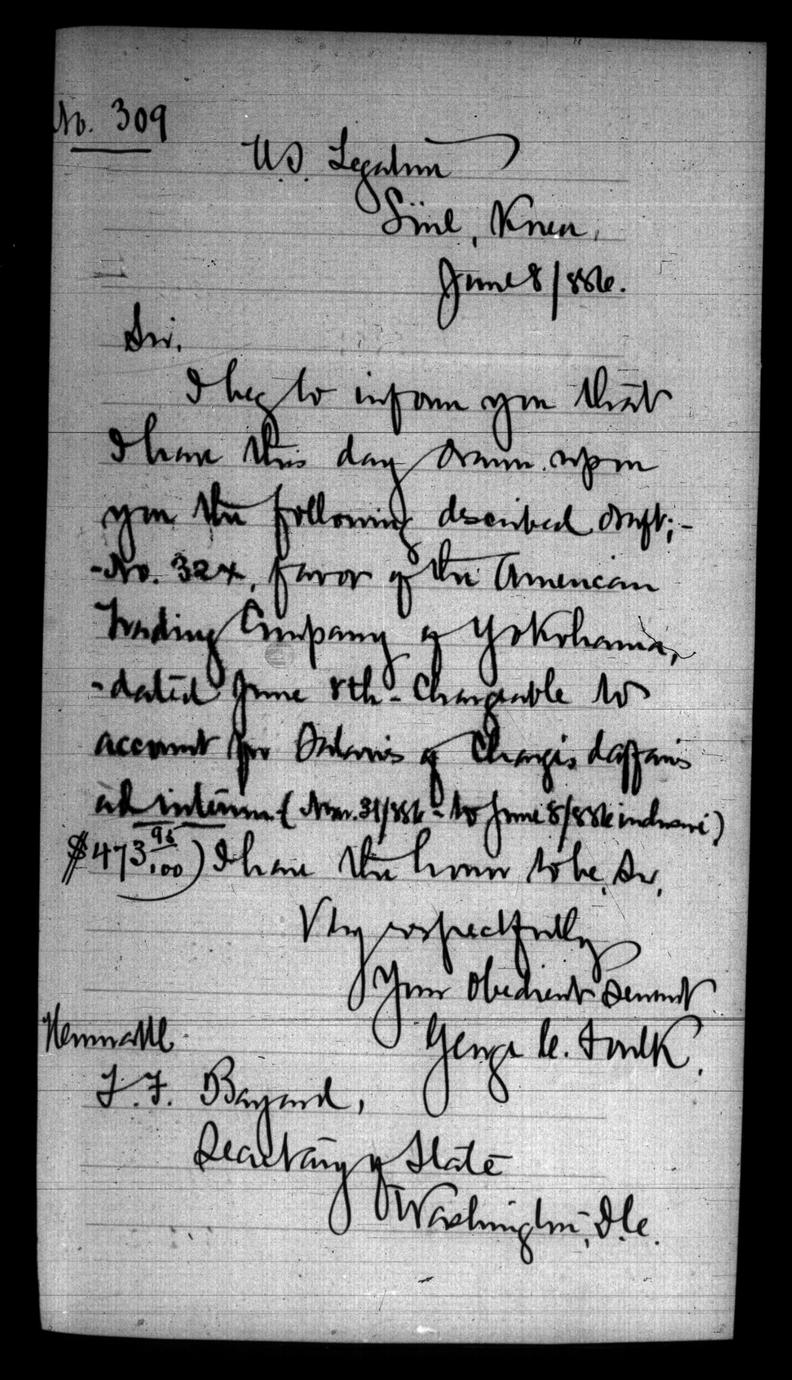 No. 309
U.S. Legation
Söul, Korea,
June 8/886.
Sir,
I beg to inform you that
I have this day drawn upon
you the following described draft;-
-No. 324, favor of the American
Trading Company of Yokohama,
-dated June 8th - Chargeable to
account for Salaries of Chargés d'affaires
ad interim (Mar. 31/886 - to June 8/886 inclusive)
$473 96/100) I have the honor to be, Sir,
Very respectfully
Your Obedient Servant
George C. Foulk.
Honorable
T. F. Bayard,
Secretary of State
Washington, D.C.